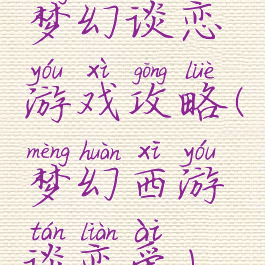 梦幻谈恋
yóu xì gōng lüè
游戏攻略(
mèng huàn xī yóu
梦幻西游
tán liàn ài
谈恋爱)